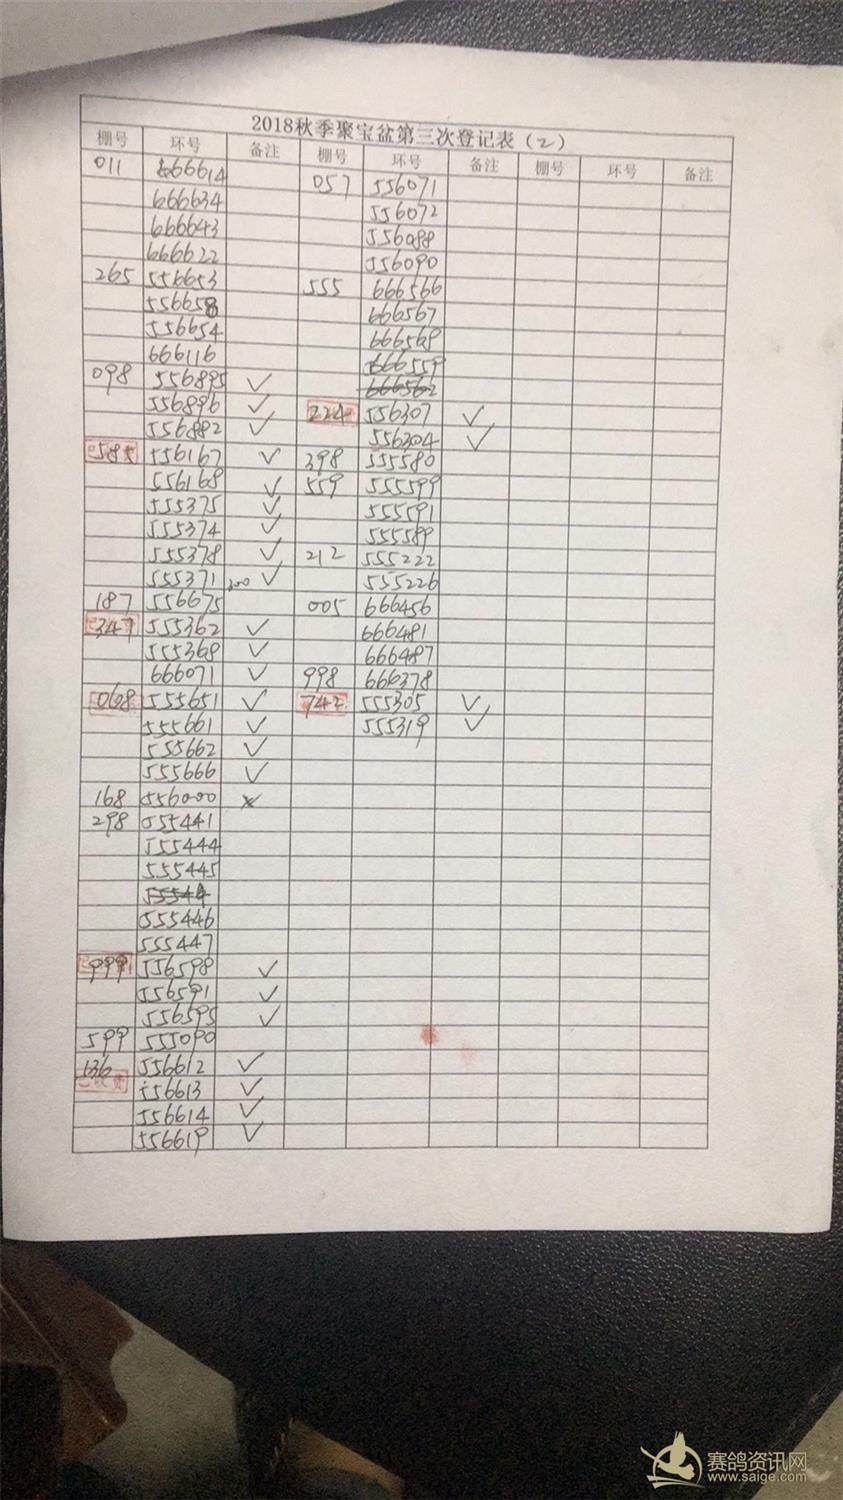 2018秋季聚宝盆第三次登记表（2）
棚号 环号 备注 棚号 环号 备注 棚号 环号 备注
011 666614 057 556071
666634 556072
666643 556088
666622 556090
265 556653 555 666566
556658 666567
556654 666568
666116 666559
098 556895 ✓ 666562
556896 ✓ 224 556307 ✓
556882 ✓ 556304 ✓
585 556167 ✓ 398 555580
556168 ✓ 559 555599
555375 ✓ 555591
555374 ✓ 555589
555378 ✓ 212 555222
555371 200 ✓ 555226
187 556675 005 666456
347 555362 ✓ 666481
555368 ✓ 666487
666071 ✓ 998 666378
068 555651 ✓ 742 555305 ✓
555661 ✓ 555319 ✓
555662 ✓
555666 ✓
168 556000 ×
298 055441
555444
555445
55544
555446
555447
999 556598 ✓
556591 ✓
556595 ✓
599 555090
136 556612 ✓
已收费 556613 ✓
556614 ✓
556619 ✓
赛鸽资讯网
www.saige.com